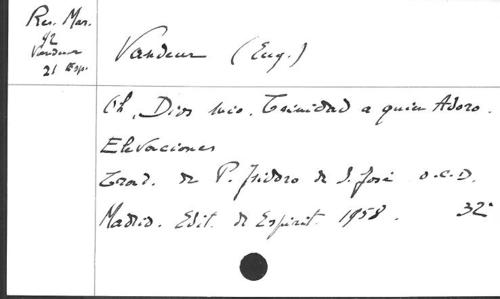 Res. Mar.
92
Vandeur
21 Esp.
Vandeur (Eug.)
Oh, Dios mio, Trinidad a quien Adoro.
Elevaciones
Trad. de P. Isidoro de S. José o.c.D.
Madrid. Edit. de Espirit. 1958. 32º